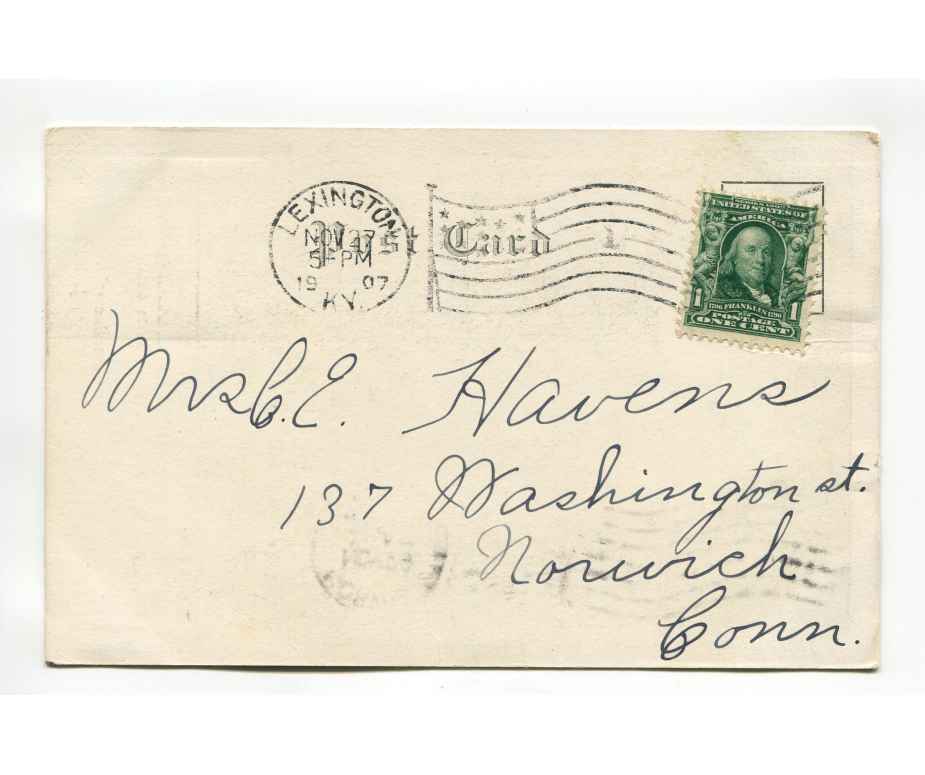 LEXINGTON
NOV 27
5 - PM
19 07
KY.
Post Card
UNITED STATES OF
AMERICA
1706 FRANKLIN 1790
POSTAGE
1 ONE CENT 1
Mrs C. E. Havens
137 Washington st.
Norwich
Conn.